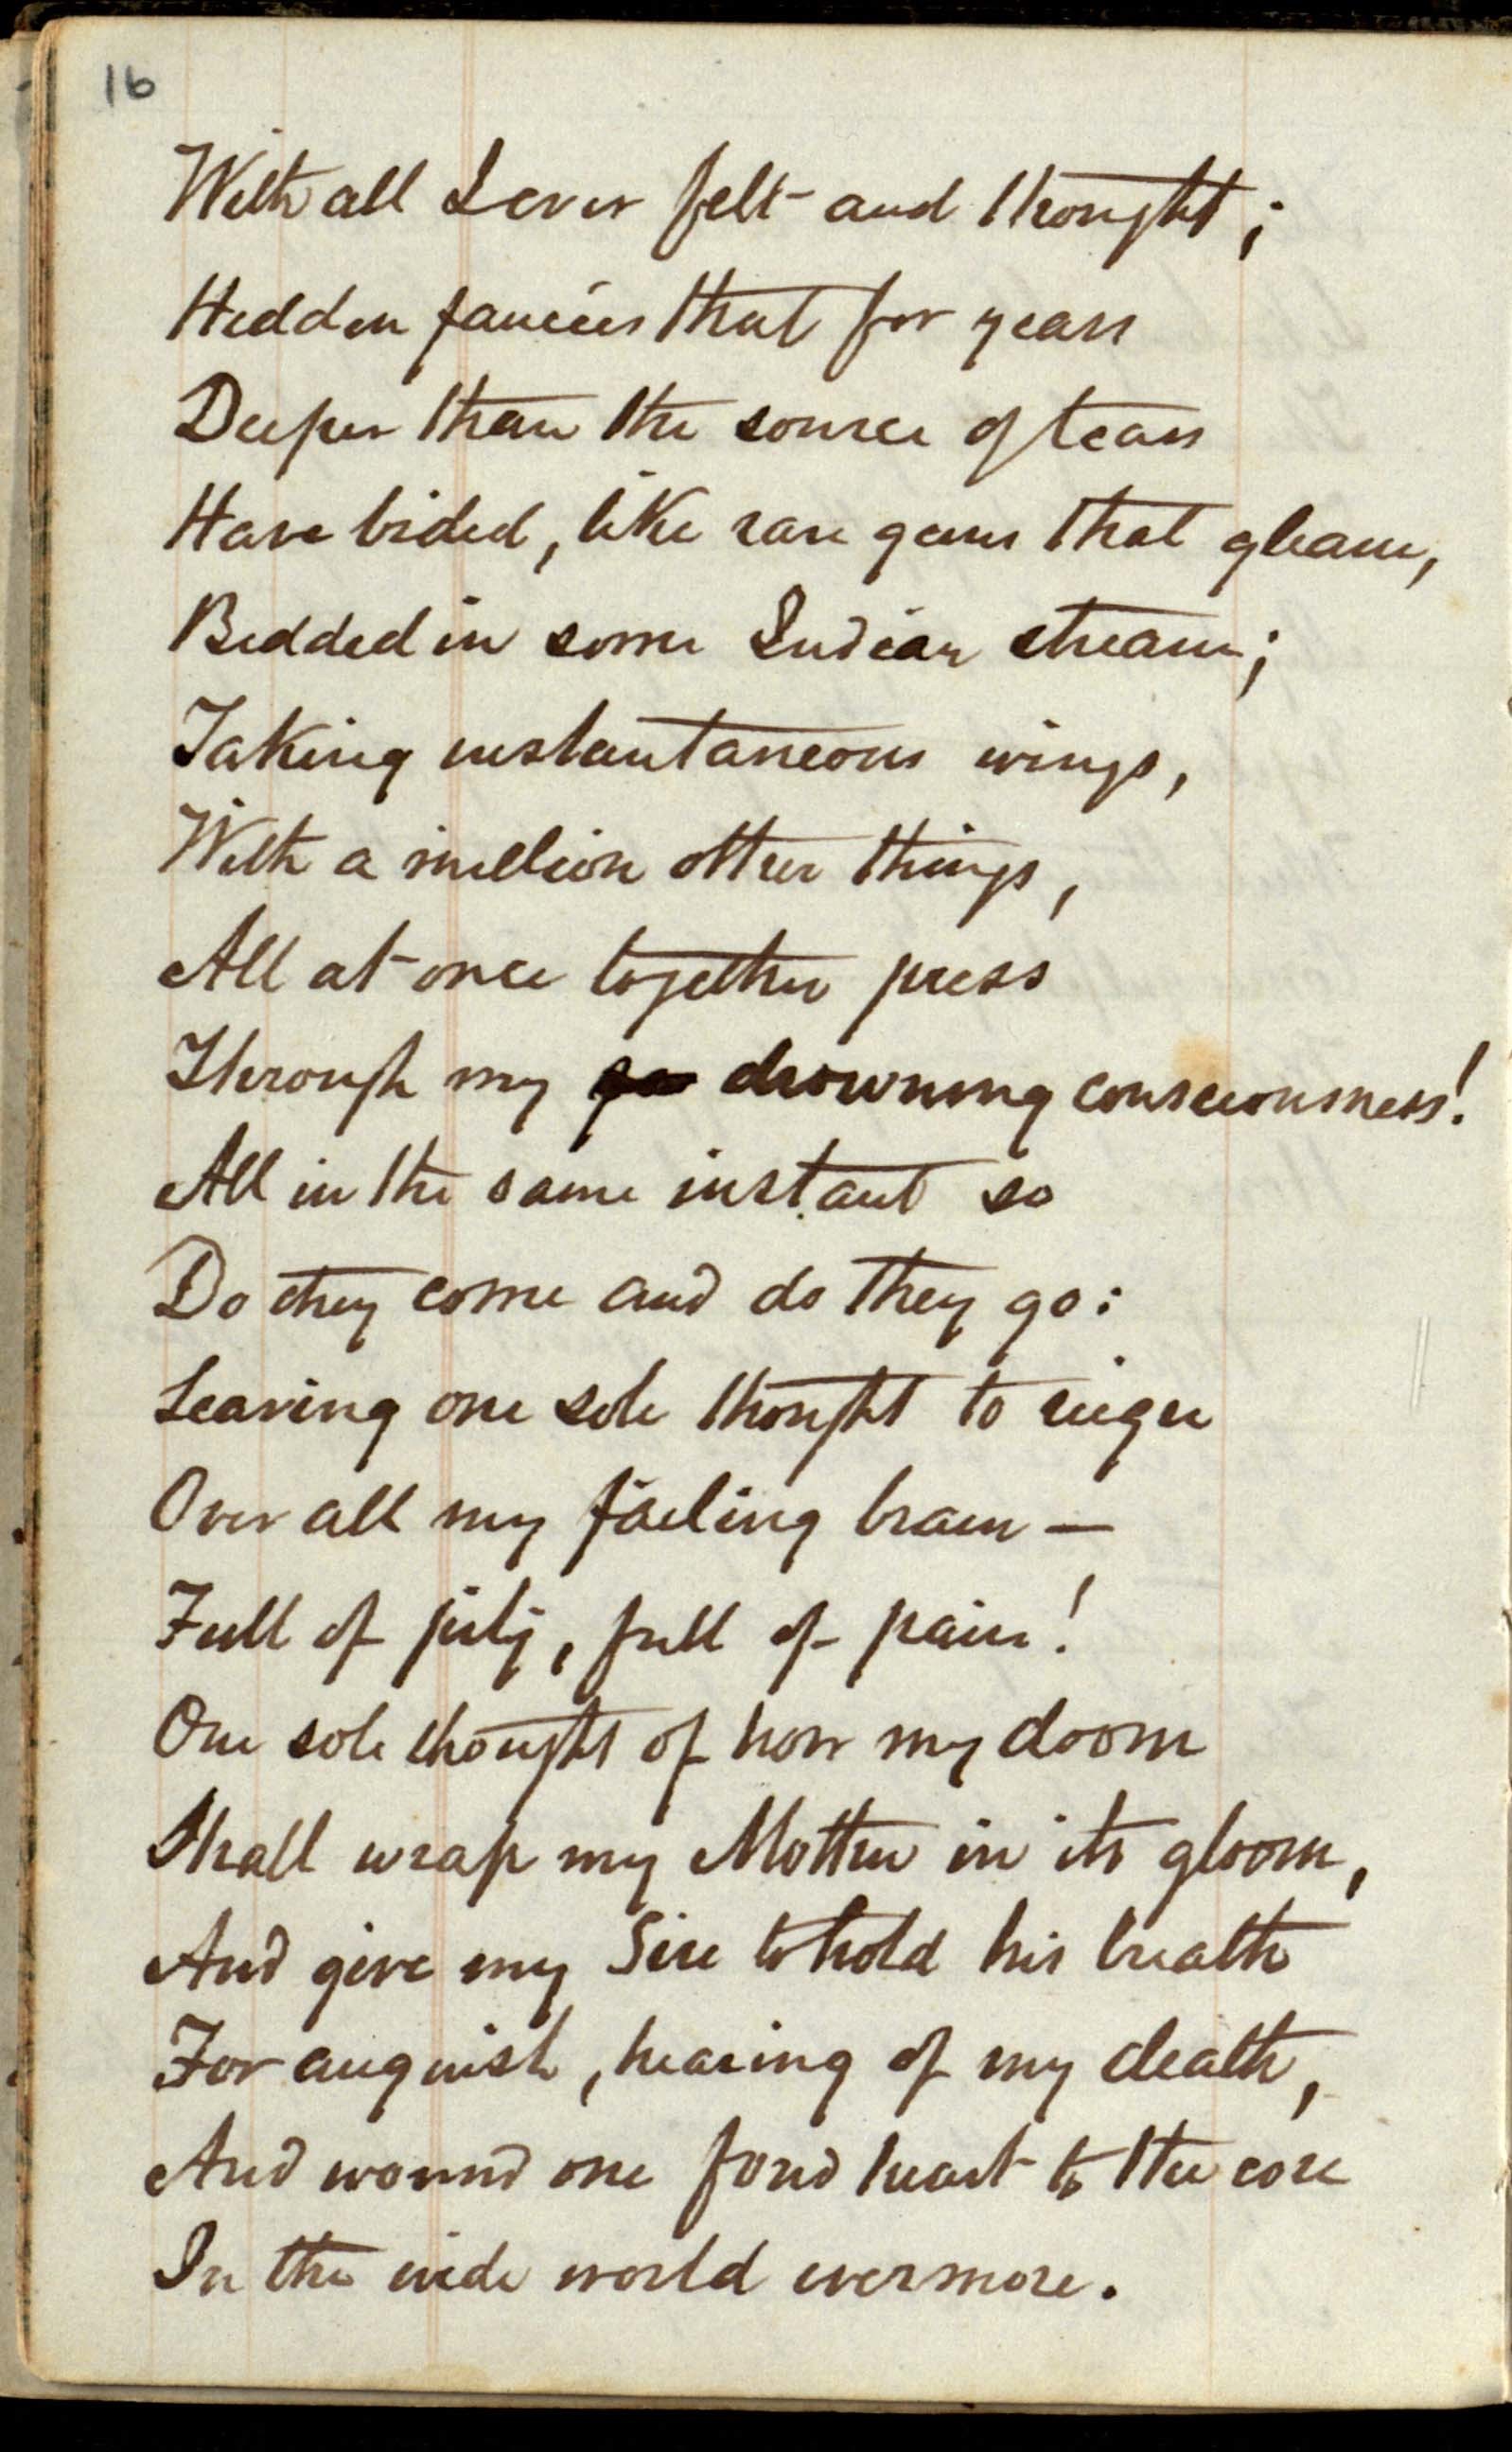 16
With all I ever felt and thought;
Hidden fancies that for years
Deeper than the source of tears
Have bided, like rare gems that gleam,
Bedded in some Indian stream;
Taking instantaneous wings,
With a million other things,
All at once together press
Through my drowning consciousness!
All in the same instant so
Do they come and do they go:
Leaving one sole thought to reign
Over all my failing brain —
Full of pity, full of pain!
One sole thought of how my doom
Shall wrap my Mother in its gloom,
And give my Sire to hold his breath
For anguish, hearing of my death,
And wound one fond heart to the core
In the wide world evermore.